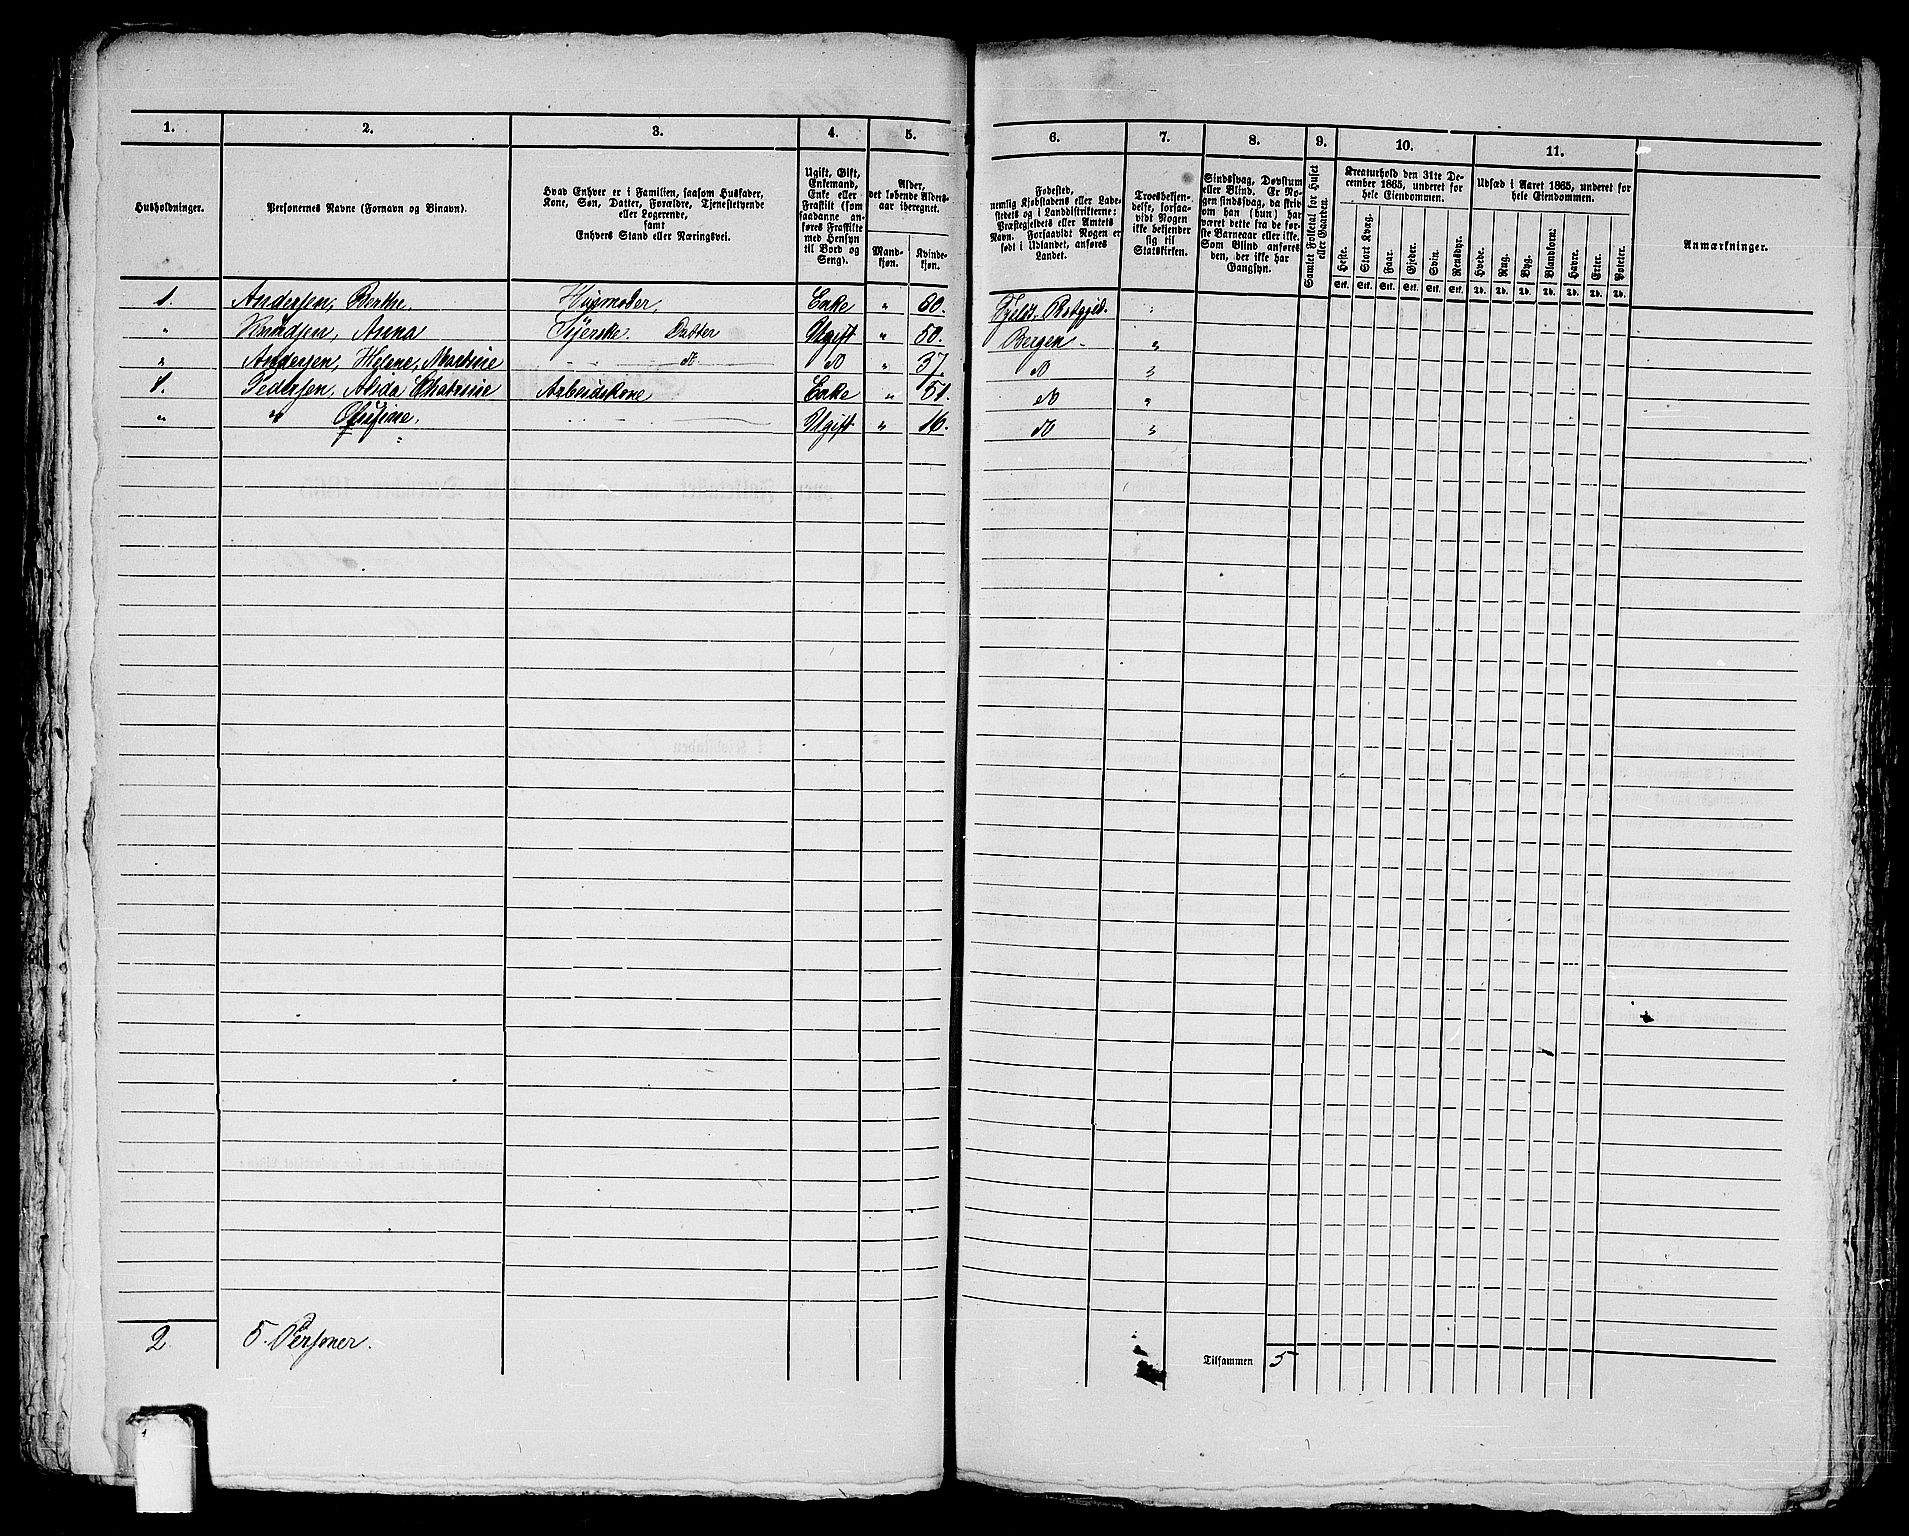 1. 2. 3. 4. 5. 6. 7. 8. 9. 10. 11.
Husholdninger.
Personernes Navne (Fornavn og Binavn).
Hvad Enhver er i Familien, saasom Husfader,
Kone, Søn, Datter, Forældre, Tjenestetyende
eller Logerende,
samt
Enhvers Stand eller Næringsvei.
Ugift, Gift,
Enkemand,
Enke eller
Fraskilt (som
saadanne an-
føres Fraskilte
med Hensyn
til Bord og
Seng).
Alder,
det løbende Alders-
aar iberegnet.
Mand-
kjøn.
Kvinde-
kjøn.
Fødested,
nemlig Kjøbstadens eller Lade-
stedets og i Landdistrikterne:
Præstegjeldets eller Amtets
Navn. Forsaavidt Nogen er
født i Udlandet, anføres
Landet.
Troesbekjen-
delse, forsaa-
vidt Nogen
ikke bekjender
sig til
Statskirken.
Sindssvag, Døvstum
eller Blind. Er No-
gen sindssvag, da skriv
om han (hun) har
været dette fra de før-
ste Barneaar eller ikke.
Som Blind anføres
den, der ikke har
Gangsyn.
Samlet Folketal for Huset
eller Gaarden.
Kreaturhold den 31te De-
cember 1865, underet for
hele Eiendommen.
Heste. Stort Kvæg. Faar. Gjeder. Svin. Rensdyr.
Stk. Stk. Stk. Stk. Stk. Stk.
Udsæd i Aaret 1865, underet for
hele Eiendommen.
Hvede. Rug. Byg. Blandkorn. Havre. Erter. Poteter.
Td. Td. Td. Td. Td. Td. Td.
Anmærkninger.
1. Andersen, Berthe Husmoder, Enke " 60. Prstgjeld.
" Knudsen, Anna Syerske. Datter Ugift " 50. Bergen "
" Andersen, Helene, Martine do do " 37. do "
1. Pedersen, Alida Chatrine Arbeidskone Enke " 51. do "
" " Olufine. Ugift " 16. do "
2 5. Personer. Tilsammen 5